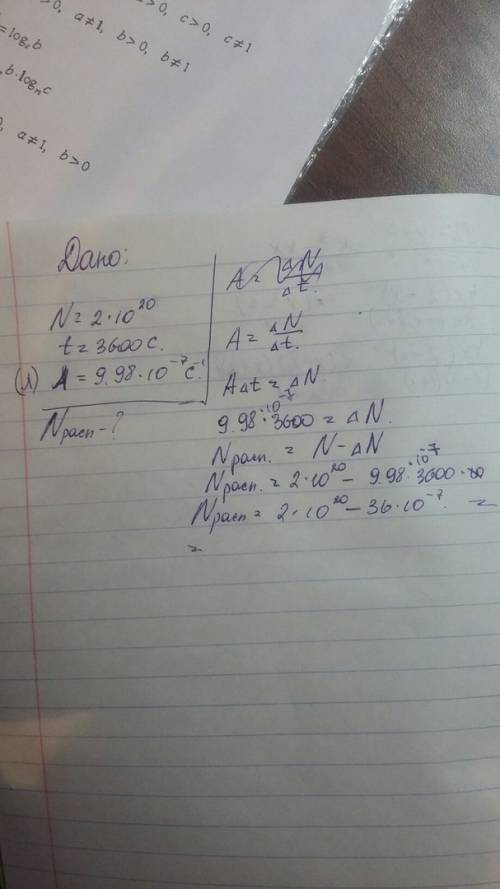 >0, a≠1, b>0, b≠1
>0, c>0, c≠1
=logₐb
b·logₙc
, a≠1, b>0
Дано:
N = 2·10²⁰
t = 3600 с.
(λ) A = 9.98·10⁻⁷ с⁻¹
Nрасп - ?
A = ΔN
Δt.
A = ΔN/Δt.
AΔt = ΔN.
9.98·10⁻⁷·3600 = ΔN.
Nрасп. = N - ΔN
Nрасп. = 2·10²⁰ - 9.98·10⁻⁷·3600·
Nрасп = 2·10²⁰ - 36·10⁻⁷. =
=